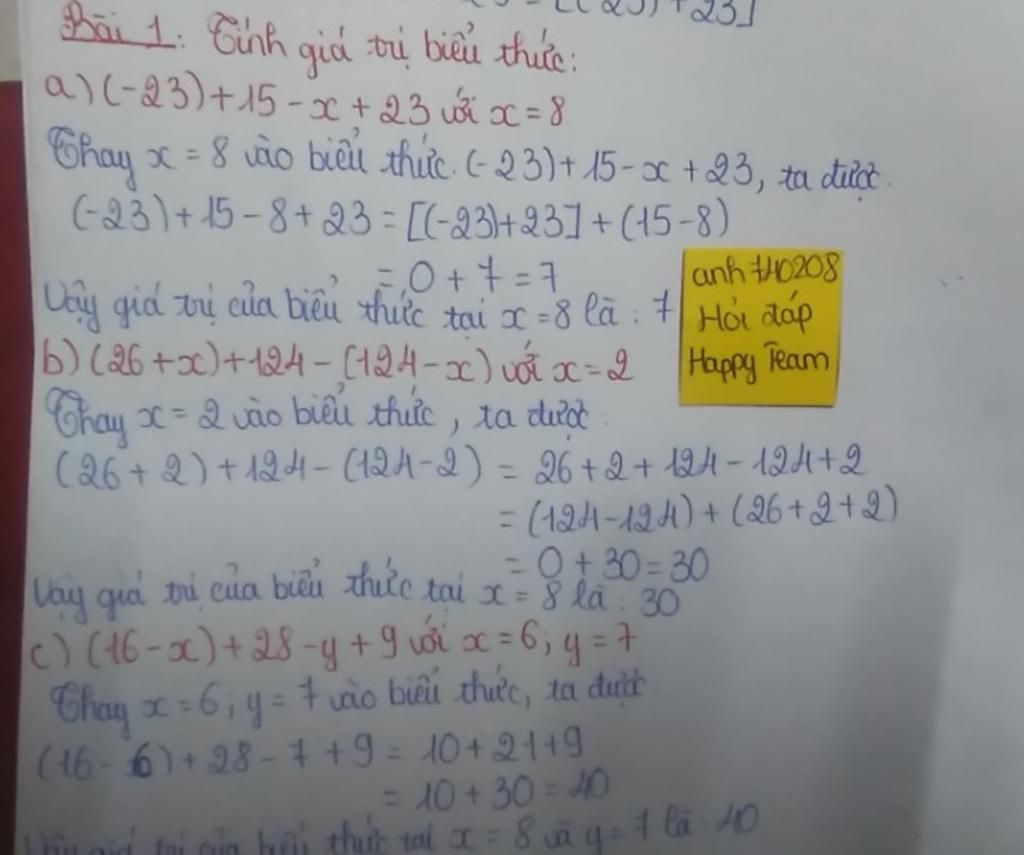 - [(-23) + 23]
Bài 1: Tính giá trị biểu thức:
a) (-23) + 15 - x + 23 với x = 8
Thay x = 8 vào biểu thức (-23) + 15 - x + 23, ta được
(-23) + 15 - 8 + 23 = [(-23) + 23] + (15 - 8)
= 0 + 7 = 7
Vậy giá trị của biểu thức tại x = 8 là : 7
anh 740208
Hỏi đáp
Happy Team
b) (26 + x) + 124 - (124 - x) với x = 2
Thay x = 2 vào biểu thức, ta được
(26 + 2) + 124 - (124 - 2) = 26 + 2 + 124 - 124 + 2
= (124 - 124) + (26 + 2 + 2)
= 0 + 30 = 30
Vậy giá trị của biểu thức tại x = 8 là : 30
c) (16 - x) + 28 - y + 9 với x = 6; y = 7
Thay x = 6; y = 7 vào biểu thức, ta được
(16 - 6) + 28 - 7 + 9 = 10 + 21 + 9
= 10 + 30 = 40
Vậy giá trị của biểu thức tại x = 8 và y = 7 là 40